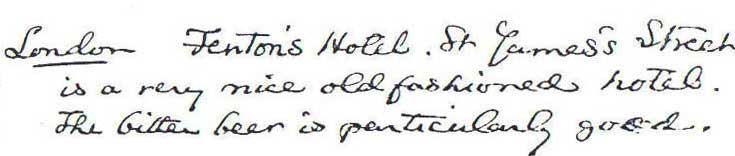 London Fenton's Hotel. St James's Street
is a very nice old fashioned hotel.
The bitter beer is particularly good.